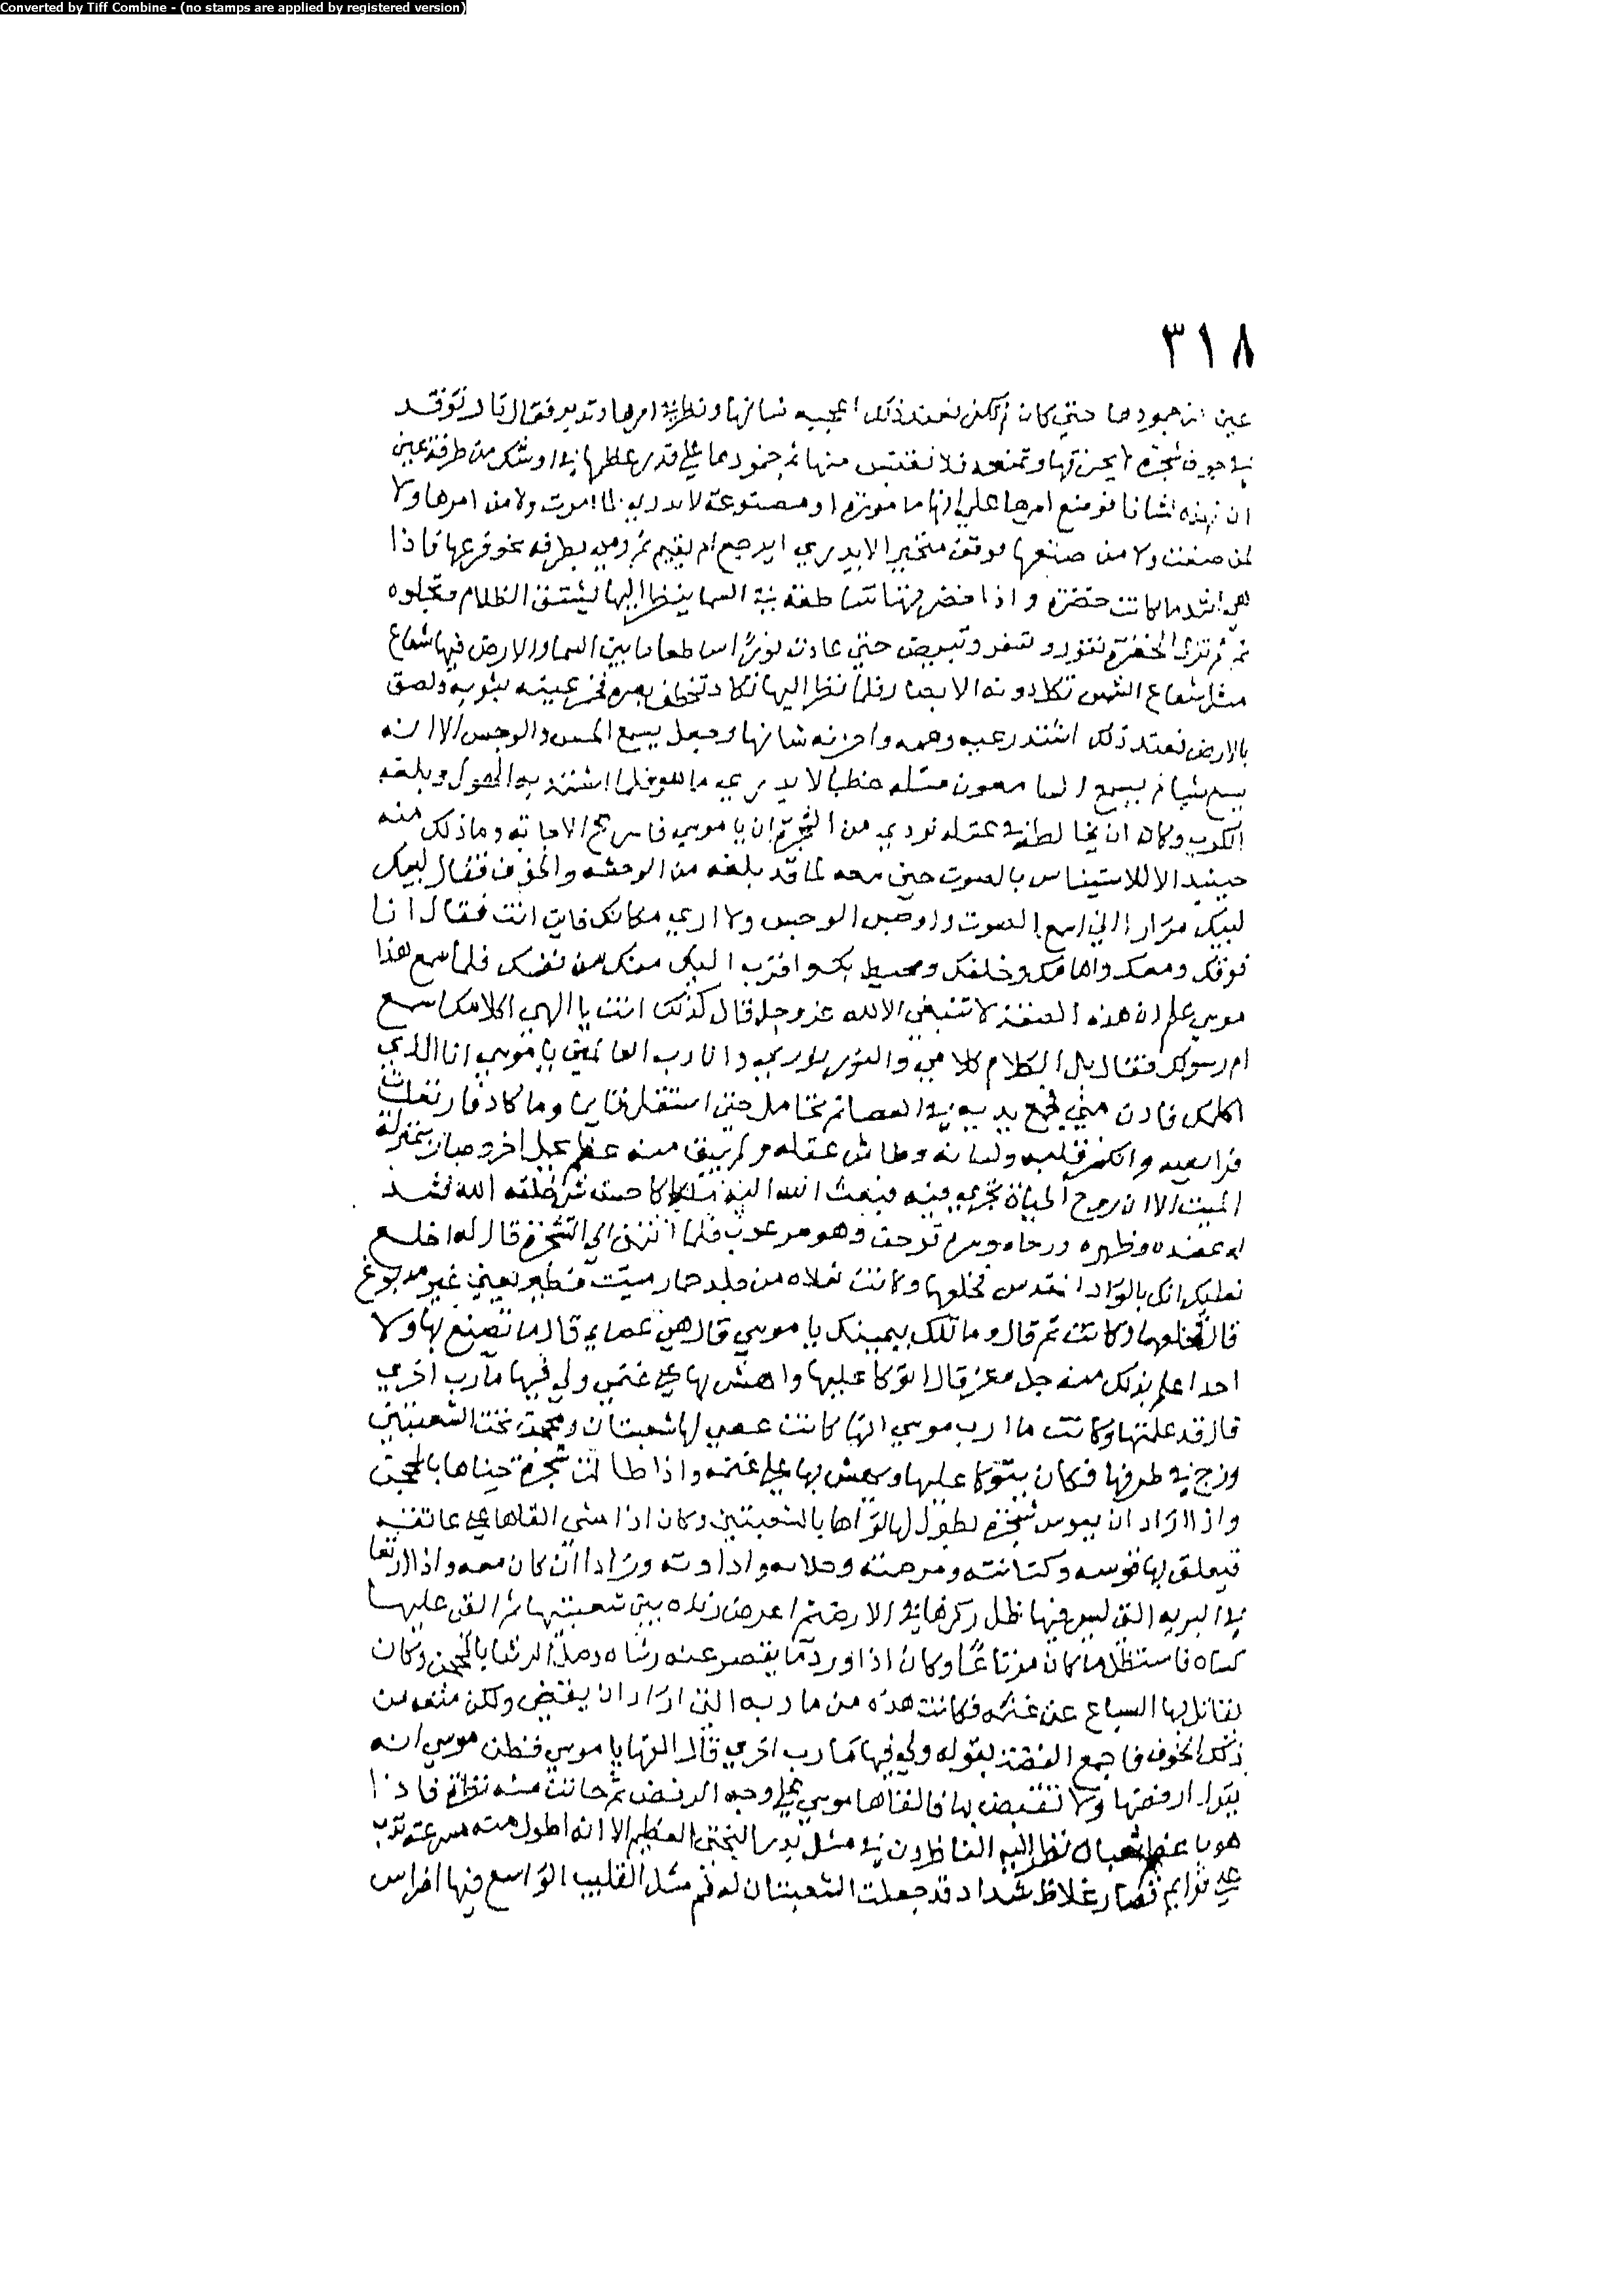 Converted by Tiff Combine - (no stamps are applied by registered version)
٣١٨
عين من خمودها حتي كان لم تكن فعند ذلك اعجبه شانها ونظر في امرها وتدبر فقال نار توقد
في جوف شجرة لا يحرقها وتمنعه فلا تقتبس منها ثم خمودها علي قدر عظمها في اوشك من طرفة عين
ان لهذه لشانا فوضع امرها علي انها مامورة او مصنوعة لا يدري لما امرت ولا من امرها ولا
لمن صنعت ولا من صنعها فوقف متحيرا لا يدري ايرجع ام يقيم ثم رمي بطرفه نحو فرعها فاذا
هي اشد ما كانت خضرة واذا خضرتها ساطعة في السما ينظر اليها تشتق الظلام وتجلوه
ثم لم تزل الخضرة تنور وتصفر وتبيض حتي عادت نورا ساطعا ما بين السما والارض فيها شعاع
مثل شعاع الشمس تكل دونه الابصار فلما نظر اليها تكاد تخطف بصره فخمر عينيه بثوبه ولصق
بالارض فعند ذلك اشتد رعبه وهمه واحزنه شانها وجعل يسمع الحس والوجس الا انه
يسمع شيا لم يسمع السامعون مثله عظما لا يدري ما هو فلما اشتد به الهول وبلغه
الكرب وكاد ان يخالط في عقله نودي من الشجرة ان يا موسي فاسرع الاجابة وما ذلك منه
حينيذ الا للاستيناس بالصوت حين سمعه لما قد بلغه من الوحشه والخوف فقال لبيك
لبيك مرارا اني اسمع الصوت واوجس الوجس ولا اري مكانك فاين انت فقال انا
فوقك ومعك وامامك وخلفك ومحيط بك واقرب اليك منك من نفسك فلما سمع هذا
موسي علم ان هذه الصفة لا تنبغي الا لله عز وجل قال كذلك انت يا الهي اكلامك اسمع
ام رسولك فقال بل الكلام كلامي والنور نوري وانا رب العالمين يا موسي انا الذي
اكلمك فادن مني فجمع يديه في العصا ثم تحامل حتي استقل قايما وما كاد فارتعدت
فرايصه وانكسر قلبه ولسانه وطاش عقله ولم يبق منه عظم يحمل اخر وصار بمنزلة
الميت الا ان روح الحياة تجري فيه فبعث الله اليه ملكا كاحسن شي خلقه الله فشد
له عضده وظهره ورجاه وسرى توحش وهو مرعوب فلما انتهي الي الشجرة قال له اخلع
نعليك انك بالواد المقدس فخلعها وكانت نعلاه من جلد حمار ميت فطير يعني غير مدبوغ
قال فخلعهما وكانت ثم قال وما تلك بيمينك يا موسي قال هي عصاي قال ما تصنع بها ولا
احدا اعلم بذلك منه جل وعز قال اتوكا عليها واهش بها علي غنمي ولي فيها مارب اخري
قال قد علمتها وكانت مارب موسي انها كانت عصي لها شعبتان ومحجن تحت الشعبتين
وزج في طرفها فكان يتوكا عليها ويهش بها علي غنمه واذا طالت شجرة حناها بالمحجن
واذا اراد ان يهوس شجرة لطول لها لواها بالشعبتين وكان اذا مشي القاها علي عاتقه
فيعلق بها قوسه وكنانته ومرجنته وحلابه واداوته وزادا ان كان معه واذا ارتعا
في البريه التي ليس فيها ظل ركزها في الارض ثم اعرض زنده بين شعبتيها ثم القي عليها
كساه فاستظل ما كان مرتاعا وكان اذا ورد ما يقصر عنه رشاه وصل الرشا بالمحجن وكان
يقاتل بها السباع عن غنمه فكانت هذه من ماربه التي اراد ان يقتضي ولكن منعه من
ذلك الخوف فاجمع القصة بقوله ولي فيها مارب اخري قال القها يا موسي فظن موسي انه
يقول ارفضها ولا تقبض بها فالقاها موسي علي وجه الرفض ثم حانت منه نظرة فاذا
هو باعظم ثعبان نظر اليه الناظرون في مثل بدن البختي العظيم الا انه اطول منه سرعته تدب
علي قوايم قصار غلاظ شداد قد جعلت الشعبتان له فم مثل القليب الواسع فيها اضراس